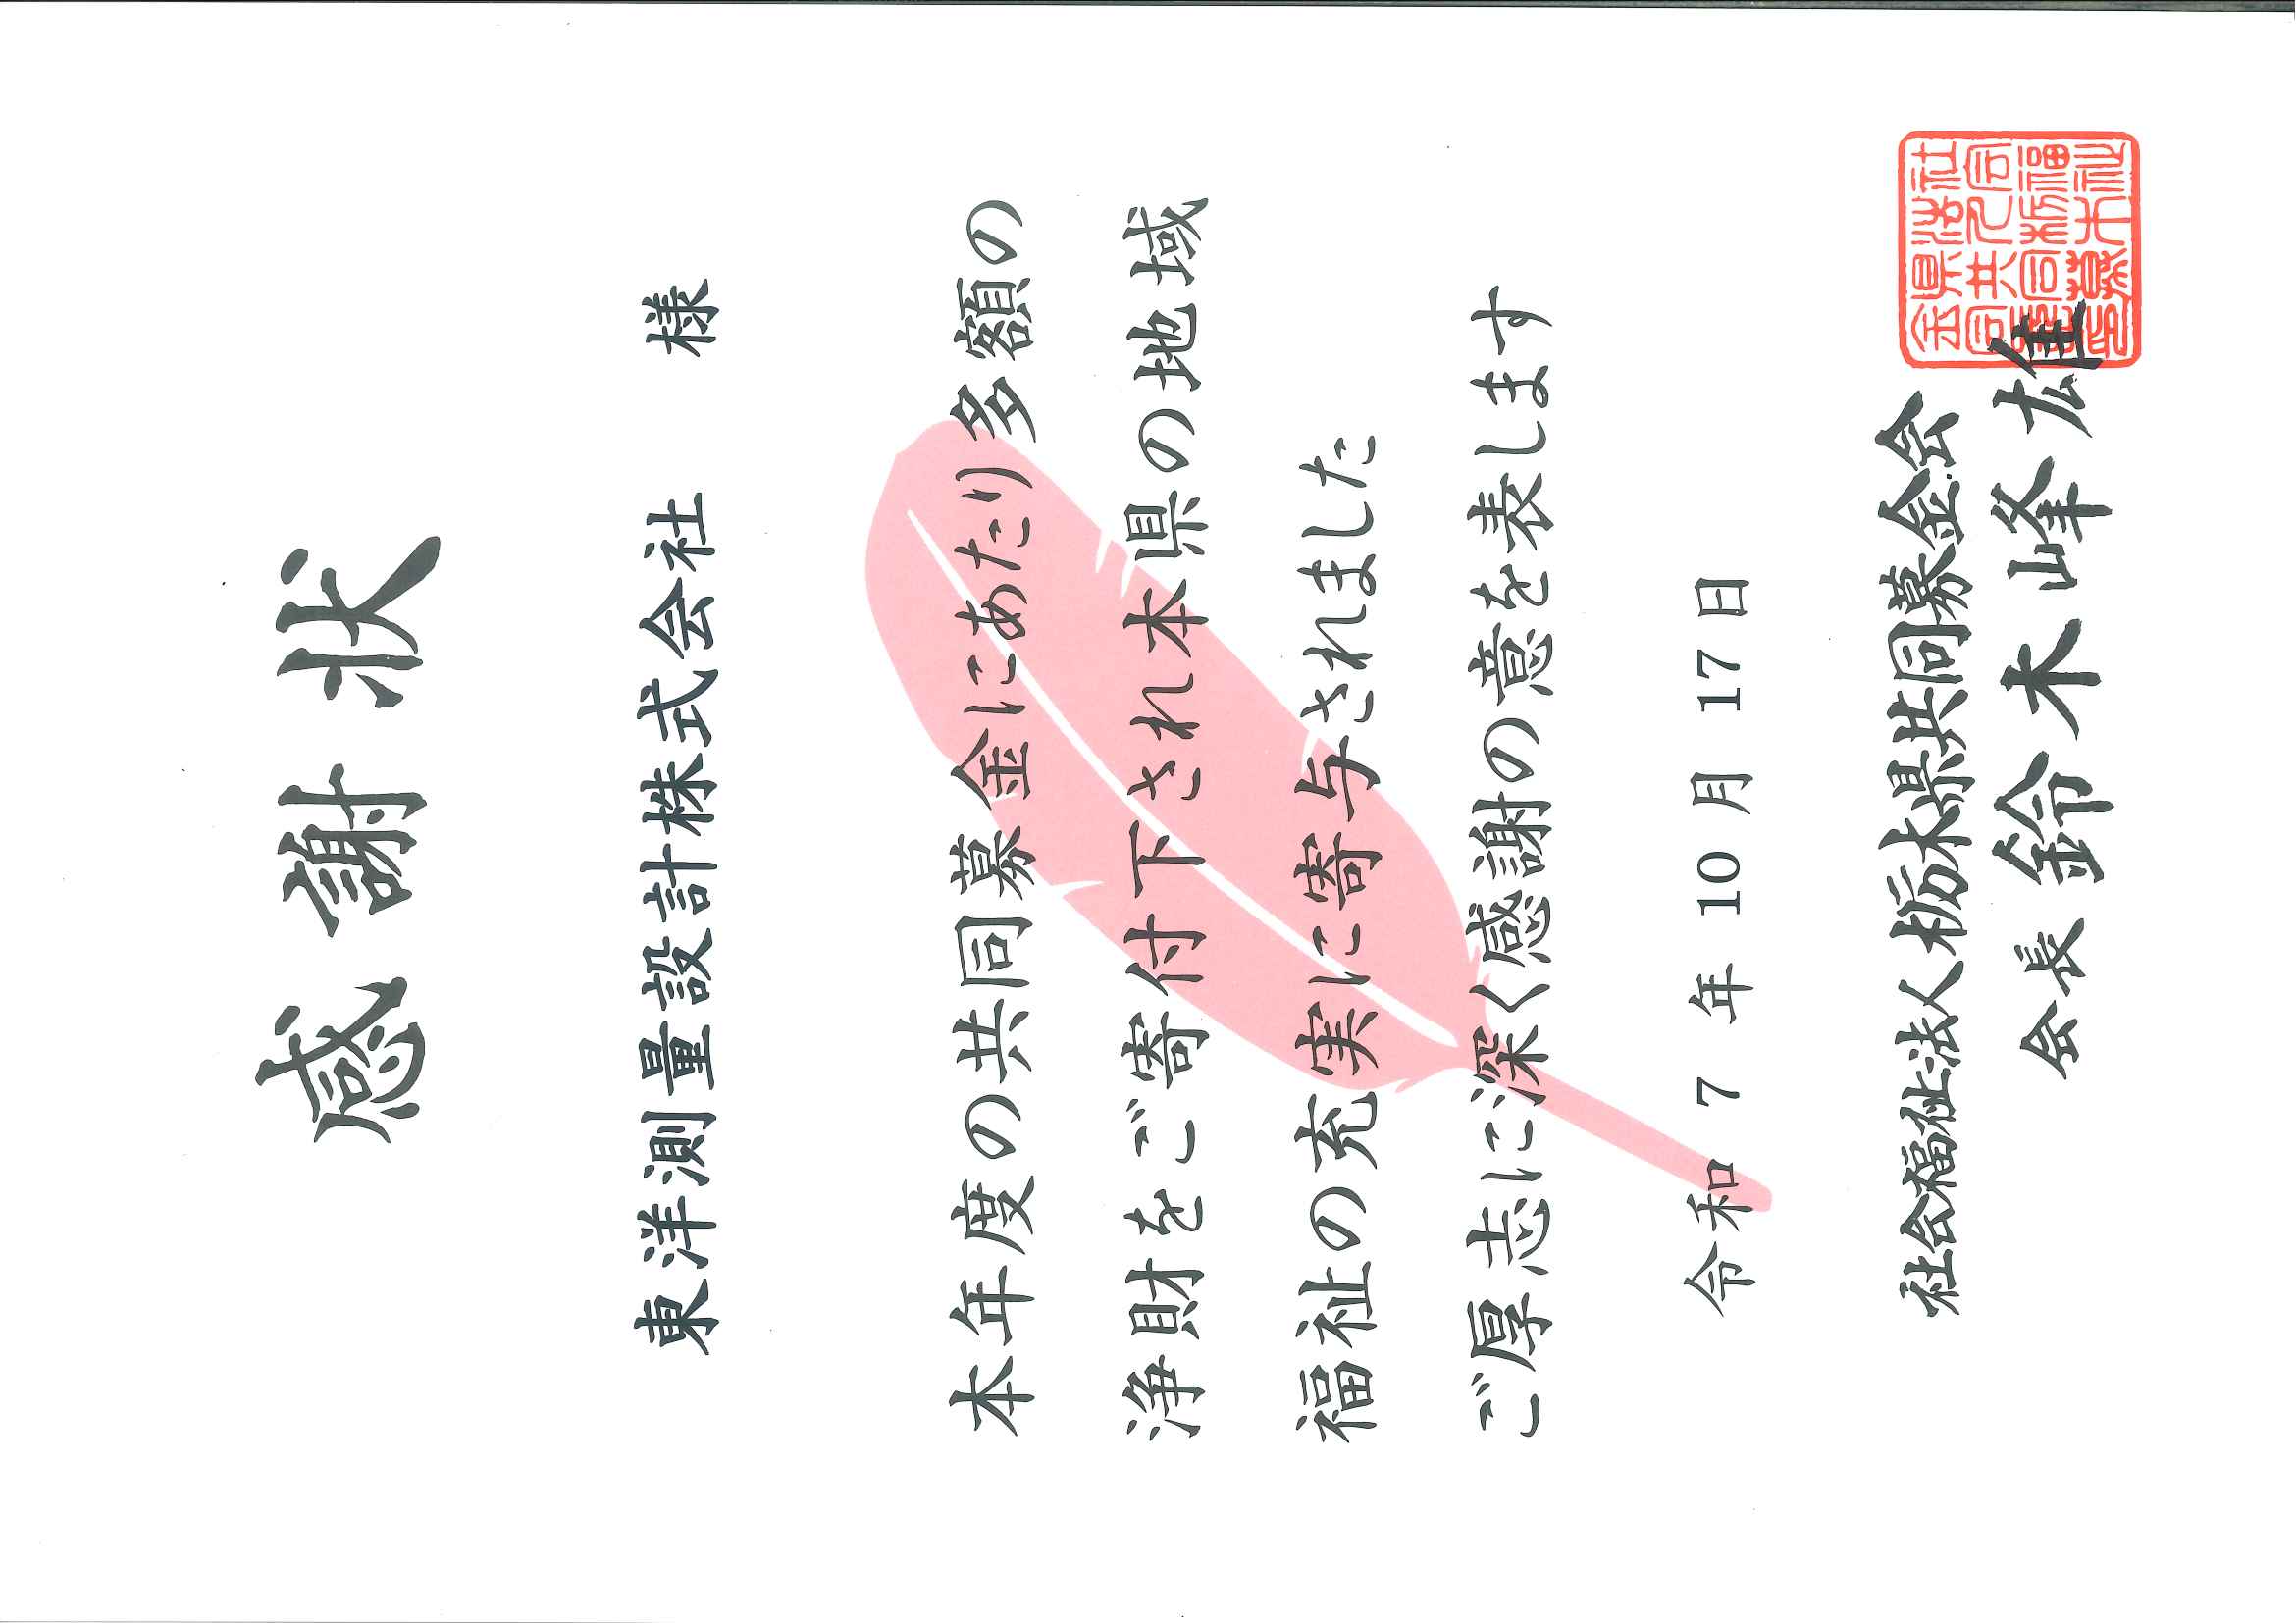 感謝状
東洋測量設計株式会社 様
本年度の共同募金にあたり多額の
浄財をご寄付下され本県の地域
福祉の充実に寄与されました
ご厚志に深く感謝の意を表します
令和 7 年 10 月 17 日
社会福祉法人栃木県共同募金会
会長 鈴木峰雄